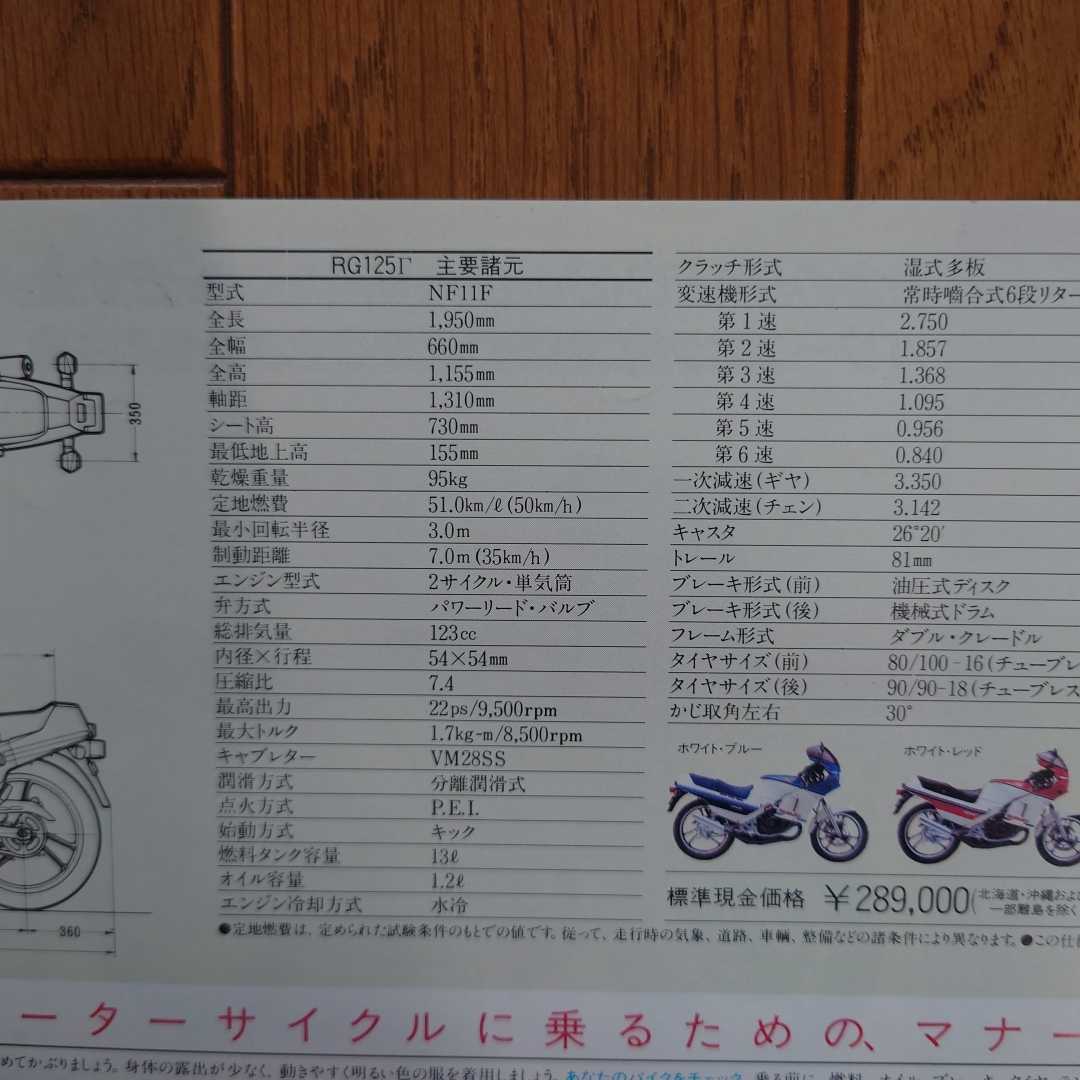 RG125Γ 主要諸元
型式 NF11F
全長 1,950mm
全幅 660mm
全高 1,155mm
軸距 1,310mm
シート高 730mm
最低地上高 155mm
乾燥重量 95kg
定地燃費 51.0km/ℓ(50km/h)
最小回転半径 3.0m
制動距離 7.0m(35km/h)
エンジン型式 2サイクル・単気筒
弁方式 パワーリード・バルブ
総排気量 123cc
内径×行程 54×54mm
圧縮比 7.4
最高出力 22ps/9,500rpm
最大トルク 1.7kg-m/8,500rpm
キャブレター VM28SS
潤滑方式 分離潤滑式
点火方式 P.E.I.
始動方式 キック
燃料タンク容量 13ℓ
オイル容量 1.2ℓ
エンジン冷却方式 水冷
クラッチ形式 湿式多板
変速機形式 常時嚙合式6段リター
第1速 2.750
第2速 1.857
第3速 1.368
第4速 1.095
第5速 0.956
第6速 0.840
一次減速(ギヤ) 3.350
二次減速(チェン) 3.142
キャスタ 26°20′
トレール 81mm
ブレーキ形式(前) 油圧式ディスク
ブレーキ形式(後) 機械式ドラム
フレーム形式 ダブル・クレードル
タイヤサイズ(前) 80/100-16(チューブレ
タイヤサイズ(後) 90/90-18(チューブレス
かじ取角左右 30°
ホワイト・ブルー ホワイト・レッド
標準現金価格 ¥289,000(北海道・沖縄およ
一部離島を除く
350
360
●定地燃費は、定められた試験条件のもとでの値です。従って、走行時の気象、道路、車輌、整備などの諸条件により異なります。●この仕
ーターサイクルに乗るための、マナー
めてかぶりましょう。身体の露出が少なく、動きやすく明るい色の服を着用しましょう。あなたのバイクをチェック 乗る前に、燃料、オイル、ブレーキ、タイヤ